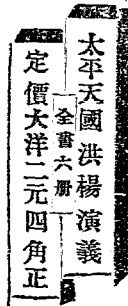 太平天國洪楊演義
全書六册
定價大洋二元四角正